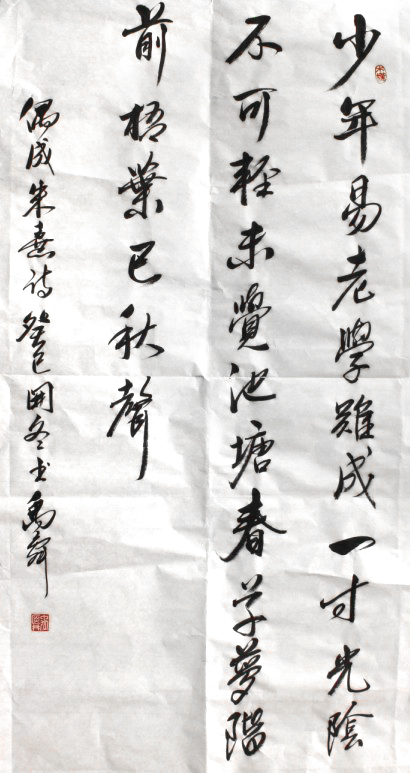 少年易老學難成一寸光陰
不可輕未覺池塘春草夢階
前梧葉已秋聲
偶成朱熹诗癸巳開冬书禹